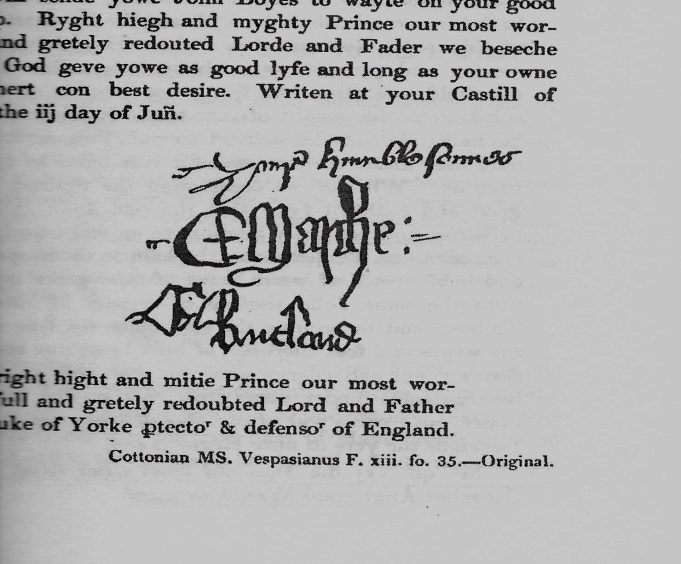 sende yowe John Boyes to wayte on your good
Ryght hiegh and myghty Prince our most wor-
nd gretely redouted Lorde and Fader we beseche
God geve yowe as good lyfe and long as your owne
hert con best desire. Writen at your Castill of
the iij day of Juñ.
humble sonnes
E Marche
E Rutland
right hight and mitie Prince our most wor-
full and gretely redoubted Lord and Father
uke of Yorke ꝓtectoʳ & defensoʳ of England.
Cottonian MS. Vespasianus F. xiii. fo. 35.—Original.